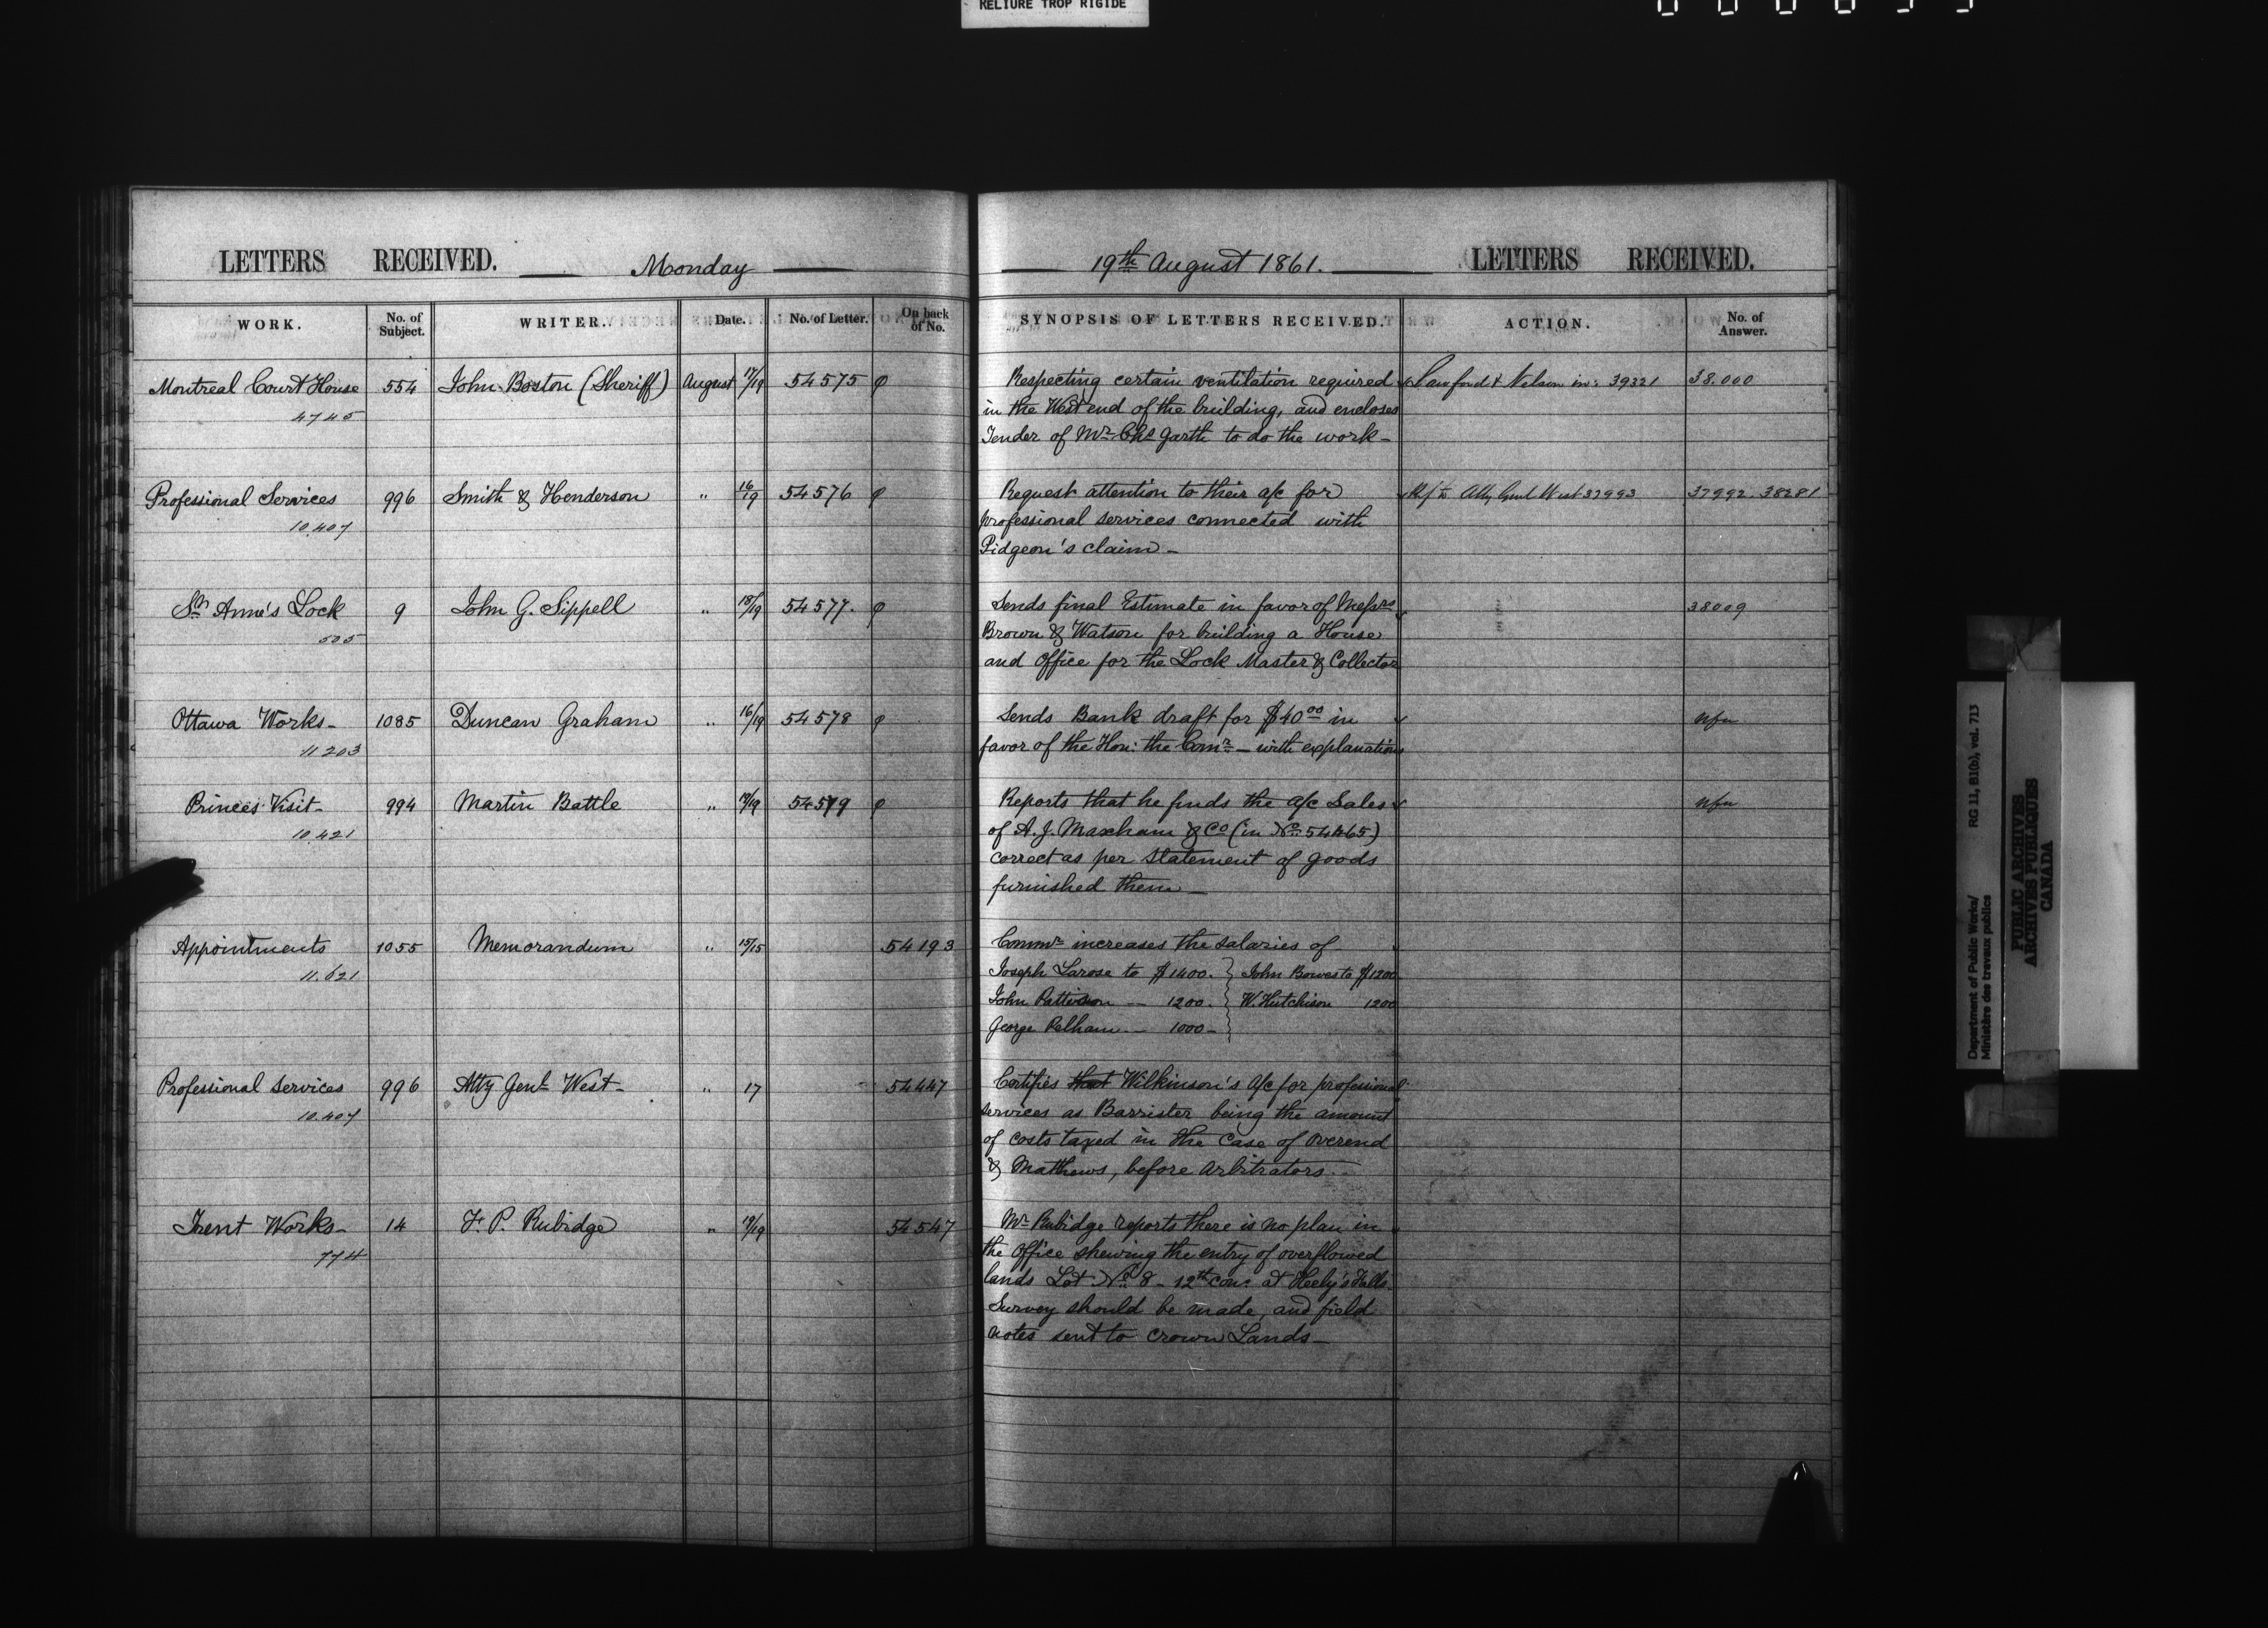 RELIURE TROP RIGIDE
LETTERS RECEIVED. Monday
WORK. No. of Subject. WRITER. Date. No. of Letter. On back of No.
Montreal Court House 554 John Boston (Sheriff) August 17/19 54575
4745
Professional Services 996 Smith & Henderson " 16/19 54576
10.407
St Anne's Lock 9 John G. Sippell " 18/19 54577.
505
Ottawa Works 1085 Duncan Graham " 16/19 54578
11203
Princes Visit 994 Martin Battle " 19/19 54579
10.421
Appointments 1055 Memorandum " 15/15 54193
11.621
Professional Services 996 Atty Genl West " 17 54447
10.407
Trent Works 14 F. P. Rubidge " 19/19 54547
774
19th August 1861. LETTERS RECEIVED.
SYNOPSIS OF LETTERS RECEIVED. ACTION. No. of Answer.
Respecting certain ventilation required Lawford & Nelson in: 39321 38.000
in the West end of the building, and encloses
Tender of Mr Chs Garth to do the work -
Request attention to their a/c for Ref to Atty Genl West 37993 37992. 38281
professional services connected with
Pidgeon's claim -
Sends final Estimate in favor of Messrs 38009
Brown & Watson for building a House
and Office for the Lock Master & Collector
Sends Bank draft for $40 00 in nfu
favor of the Hon: the Comr - with explanations
Reports that he finds the a/c Sales nfu
of A. J. Maxham & Co (in No. 54465)
correct as per statement of goods
furnished them -
Commr increases the salaries of
Joseph Larose to $1400. } John Bowes to $1200
John Patterson - 1200. } W. Hutchison 1200
George Pelham - 1000 - }
Certifies that Wilkinson's a/c for professional
services as Barrister being the amount
of costs taxed in the case of Overend
& Mathews, before arbitrators -
Mr Rubidge reports there is no plan in
the office shewing the entry of overflowed
lands Lot No. 8 - 12th con: at Heely's Falls.
Survey should be made, and field
notes sent to Crown Lands -
Department of Public Works/
Ministère des travaux publics
RG 11, B1(b), vol. 713
PUBLIC ARCHIVES
ARCHIVES PUBLIQUES
CANADA